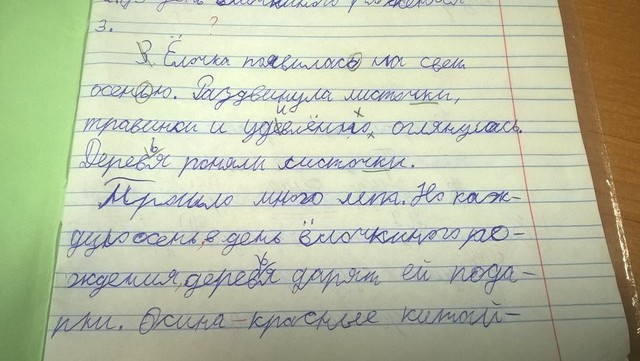 день ёлочкиного рождения
3. ?
З. Ёлочка появилась на свет
осенью. Раздвинула листочки,
травинки и удивлённо, оглянулась.
Деревья роняли листочки.
Прошло много лет. Но каж-
дую осень, в день ёлочкиного ро-
ждения, деревья дарят ей пода-
рки. Осина - красные китай-